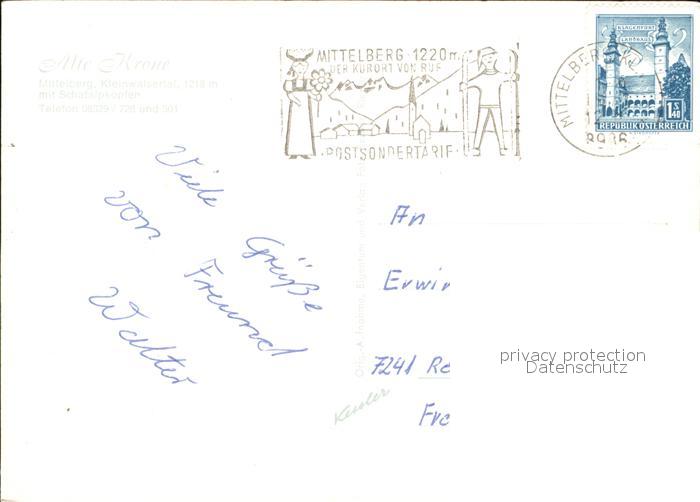 Alte Krone
Mittelberg, Kleinwalsertal, 1218 m
mit Schafalpköpfen
Telefon 08329 / 728 und 501
MITTELBERG 1220 m
DER KURORT VON RUF
POSTSONDERTARIF
MITTELBERG
KLAGENFURT
LANDHAUS
1 S 40
REPUBLIK ÖSTERREICH
Viele Grüße
von Freund
Walter
An
Erwin
7241 Re
Fre
Kessler
privacy protection
Datenschutz